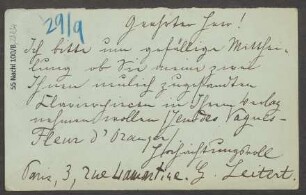 29/9
Geehrter Herr!
Ich bitte um gefällige Mitthei-
lung ob Sie meine zwei
Ihnen neulich zugesandten
Clavierpiecen in Ihren Verlag
nehmen wollen Vagues-
Fleur d'Oranger
Hochachtungsvoll
Paris, 3, rue Lamartine. G. Leitert.
55 Nachl 100/B